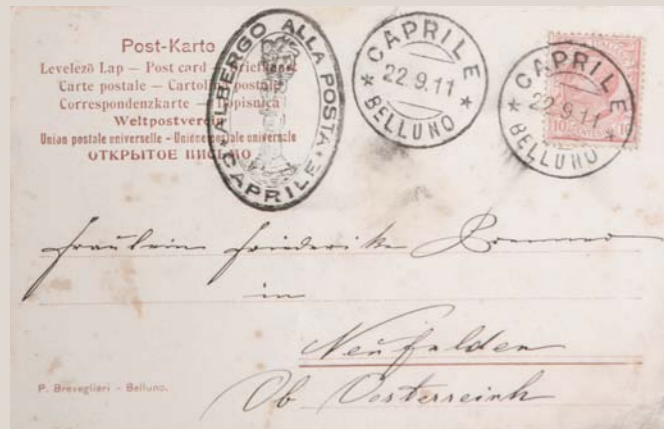 Post-Karte
Levelező Lap — Post card — Briefkaart
Carte postale — Cartolina postale
Correspondenzkarte — Dopisnica
Weltpostverein
Union postale universelle - Unione postale universale
ОТКРЫТОЕ ПИСЬМО
ALBERGO ALLA POSTA
CAPRILE
CAPRILE
22.9.11
BELLUNO
CAPRILE
22.9.11
BELLUNO
10 CENTES. 10
Fräulein Friederike
in
Neufelden
Ob Oesterreich
P. Breveglieri - Belluno.